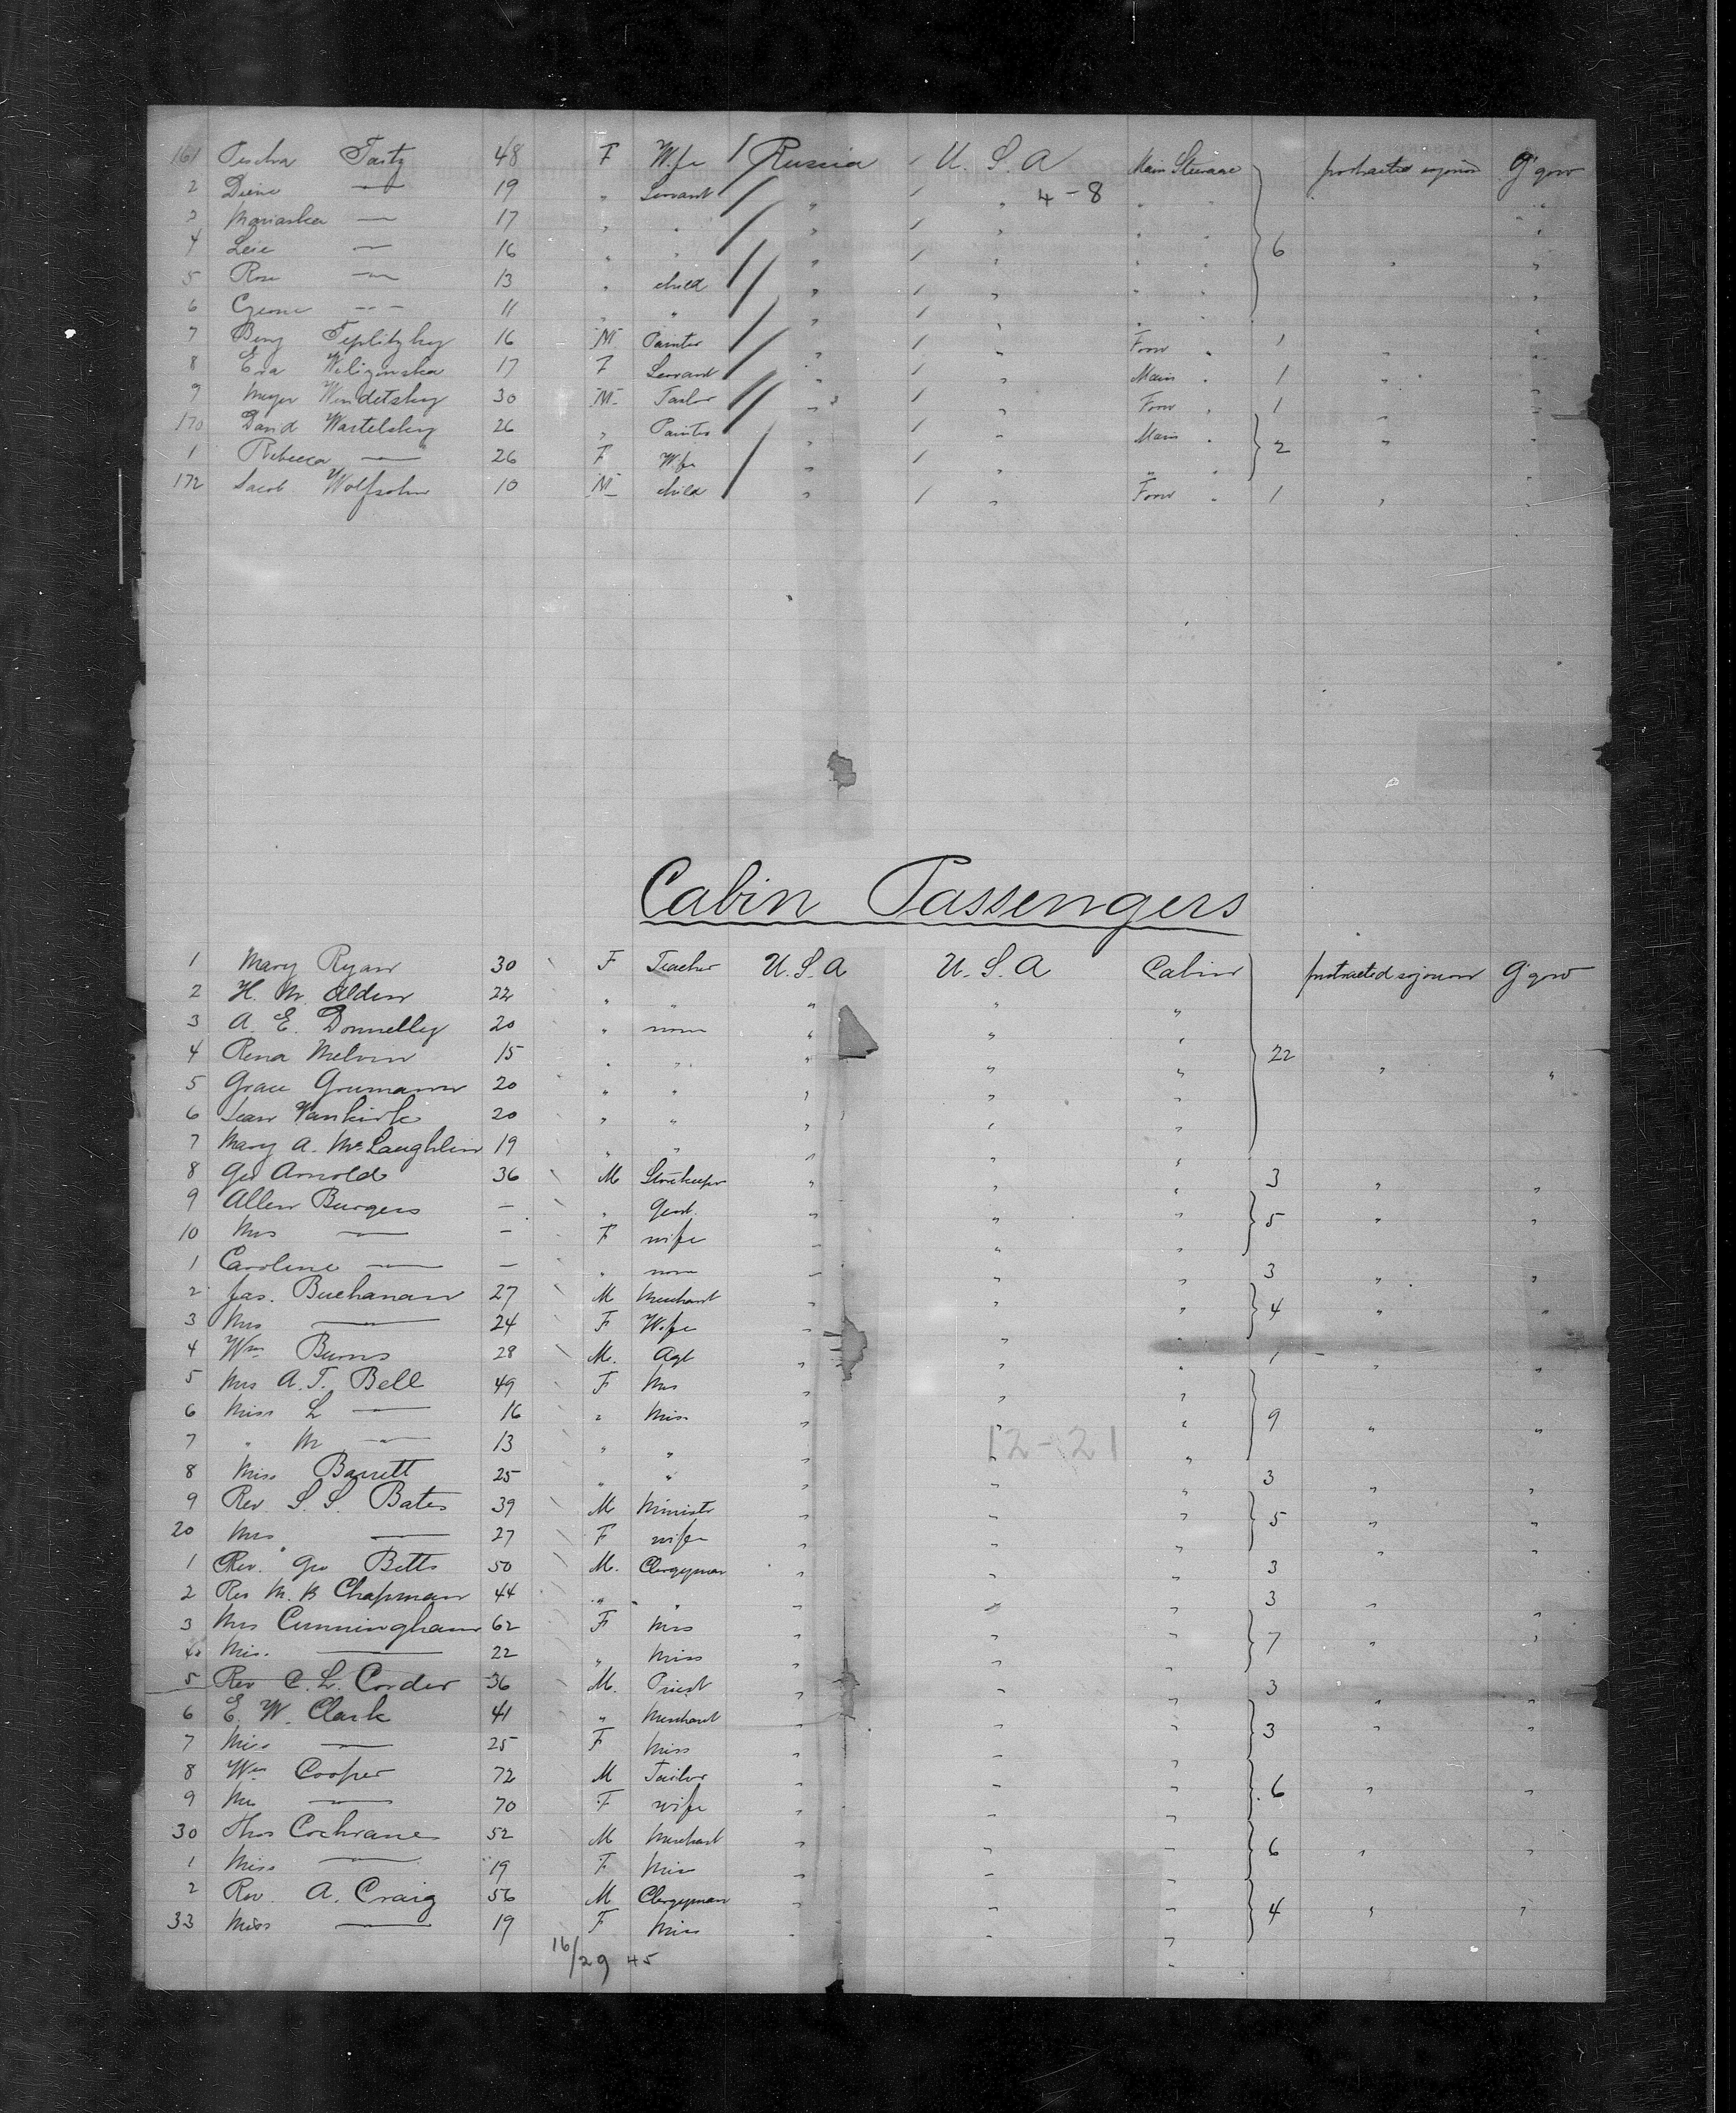 161 Pescha Tartz 48 F Wife Russia U. S. A Main Steerage protracted sojourn G'gow
2 Diene — 19 " Servant " " 4-8 " " "
3 Mariaska — 17 " " " " " " "
4 Leie — 16 " " " " " " 6
5 Rose — 13 " child " " " " " "
6 Czerne — 11 " " " " " " "
7 Beny Teplitzky 16 M Painter " " Forw " 1 " "
8 Era Wilizinska 17 F Servant " " Main " 1 " "
9 Meyer Windetsky 30 M Tailor " " Forw " 1 " "
170 David Wartelsky 26 " Painter " " Main " 2 " "
1 Rebecca — 26 F Wife " " " "
172 Jacob Wolfsohn 10 M child " " Forw " 1 " "
Cabin Passengers
1 Mary Ryan 30 F Teacher U. S. A U. S. A Cabin protracted sojourn G'gow
2 H. M. Alden 22 " " " " "
3 A. E. Donnelly 20 " none " " "
4 Rena Melvin 15 " " " " " 22 " "
5 Grace Grumann 20 " " " " "
6 Jean Vankirk 20 " " " " "
7 Mary A. McLaughlin 19 " " " " "
8 Geo Arnold 36 M Storekeeper " " " 3 " "
9 Allen Burgess — " Gent. " " " 5 " "
10 Mrs — — F wife " " "
1 Caroline — — " none " " " 3 " "
2 Jas. Buchanan 27 M Merchant " " " 4 " "
3 Mrs — 24 F Wife " " "
4 Wm Burns 28 M. Agt " " " 1 " "
5 Mrs A. T. Bell 49 F Mrs " " "
6 Miss L — 16 " Miss " " " 9 " "
7 " M — 13 " " " " " 12-21
8 Miss Barrett 25 " " " " " 3 " "
9 Rev. S. S. Bates 39 M Minister " " " 5 " "
20 Mrs — 27 F wife " " "
1 Rev. Geo Betts 50 M. Clergyman " " " 3 " "
2 Rev M. B Chapman 44 " " " " " 3 " "
3 Mrs Cunningham 62 F Mrs " " " 7 " "
4 Miss — 22 " Miss " " "
5 Rev C. L. Corder 36 M. Priest " " " 3 " "
6 E. W. Clark 41 " Merchant " " " 3 " "
7 Miss — 25 F Miss " " "
8 Wm Cooper 72 M Tailor " " " 6 " "
9 Mrs — 70 F wife " " "
30 Thos Cochrane 52 M Merchant " " " 6 " "
1 Miss — 19 F Miss " " "
2 Rev. A. Craig 56 M Clergyman " " " 4 " "
33 Miss — 19 F Miss " " "
16/29 45